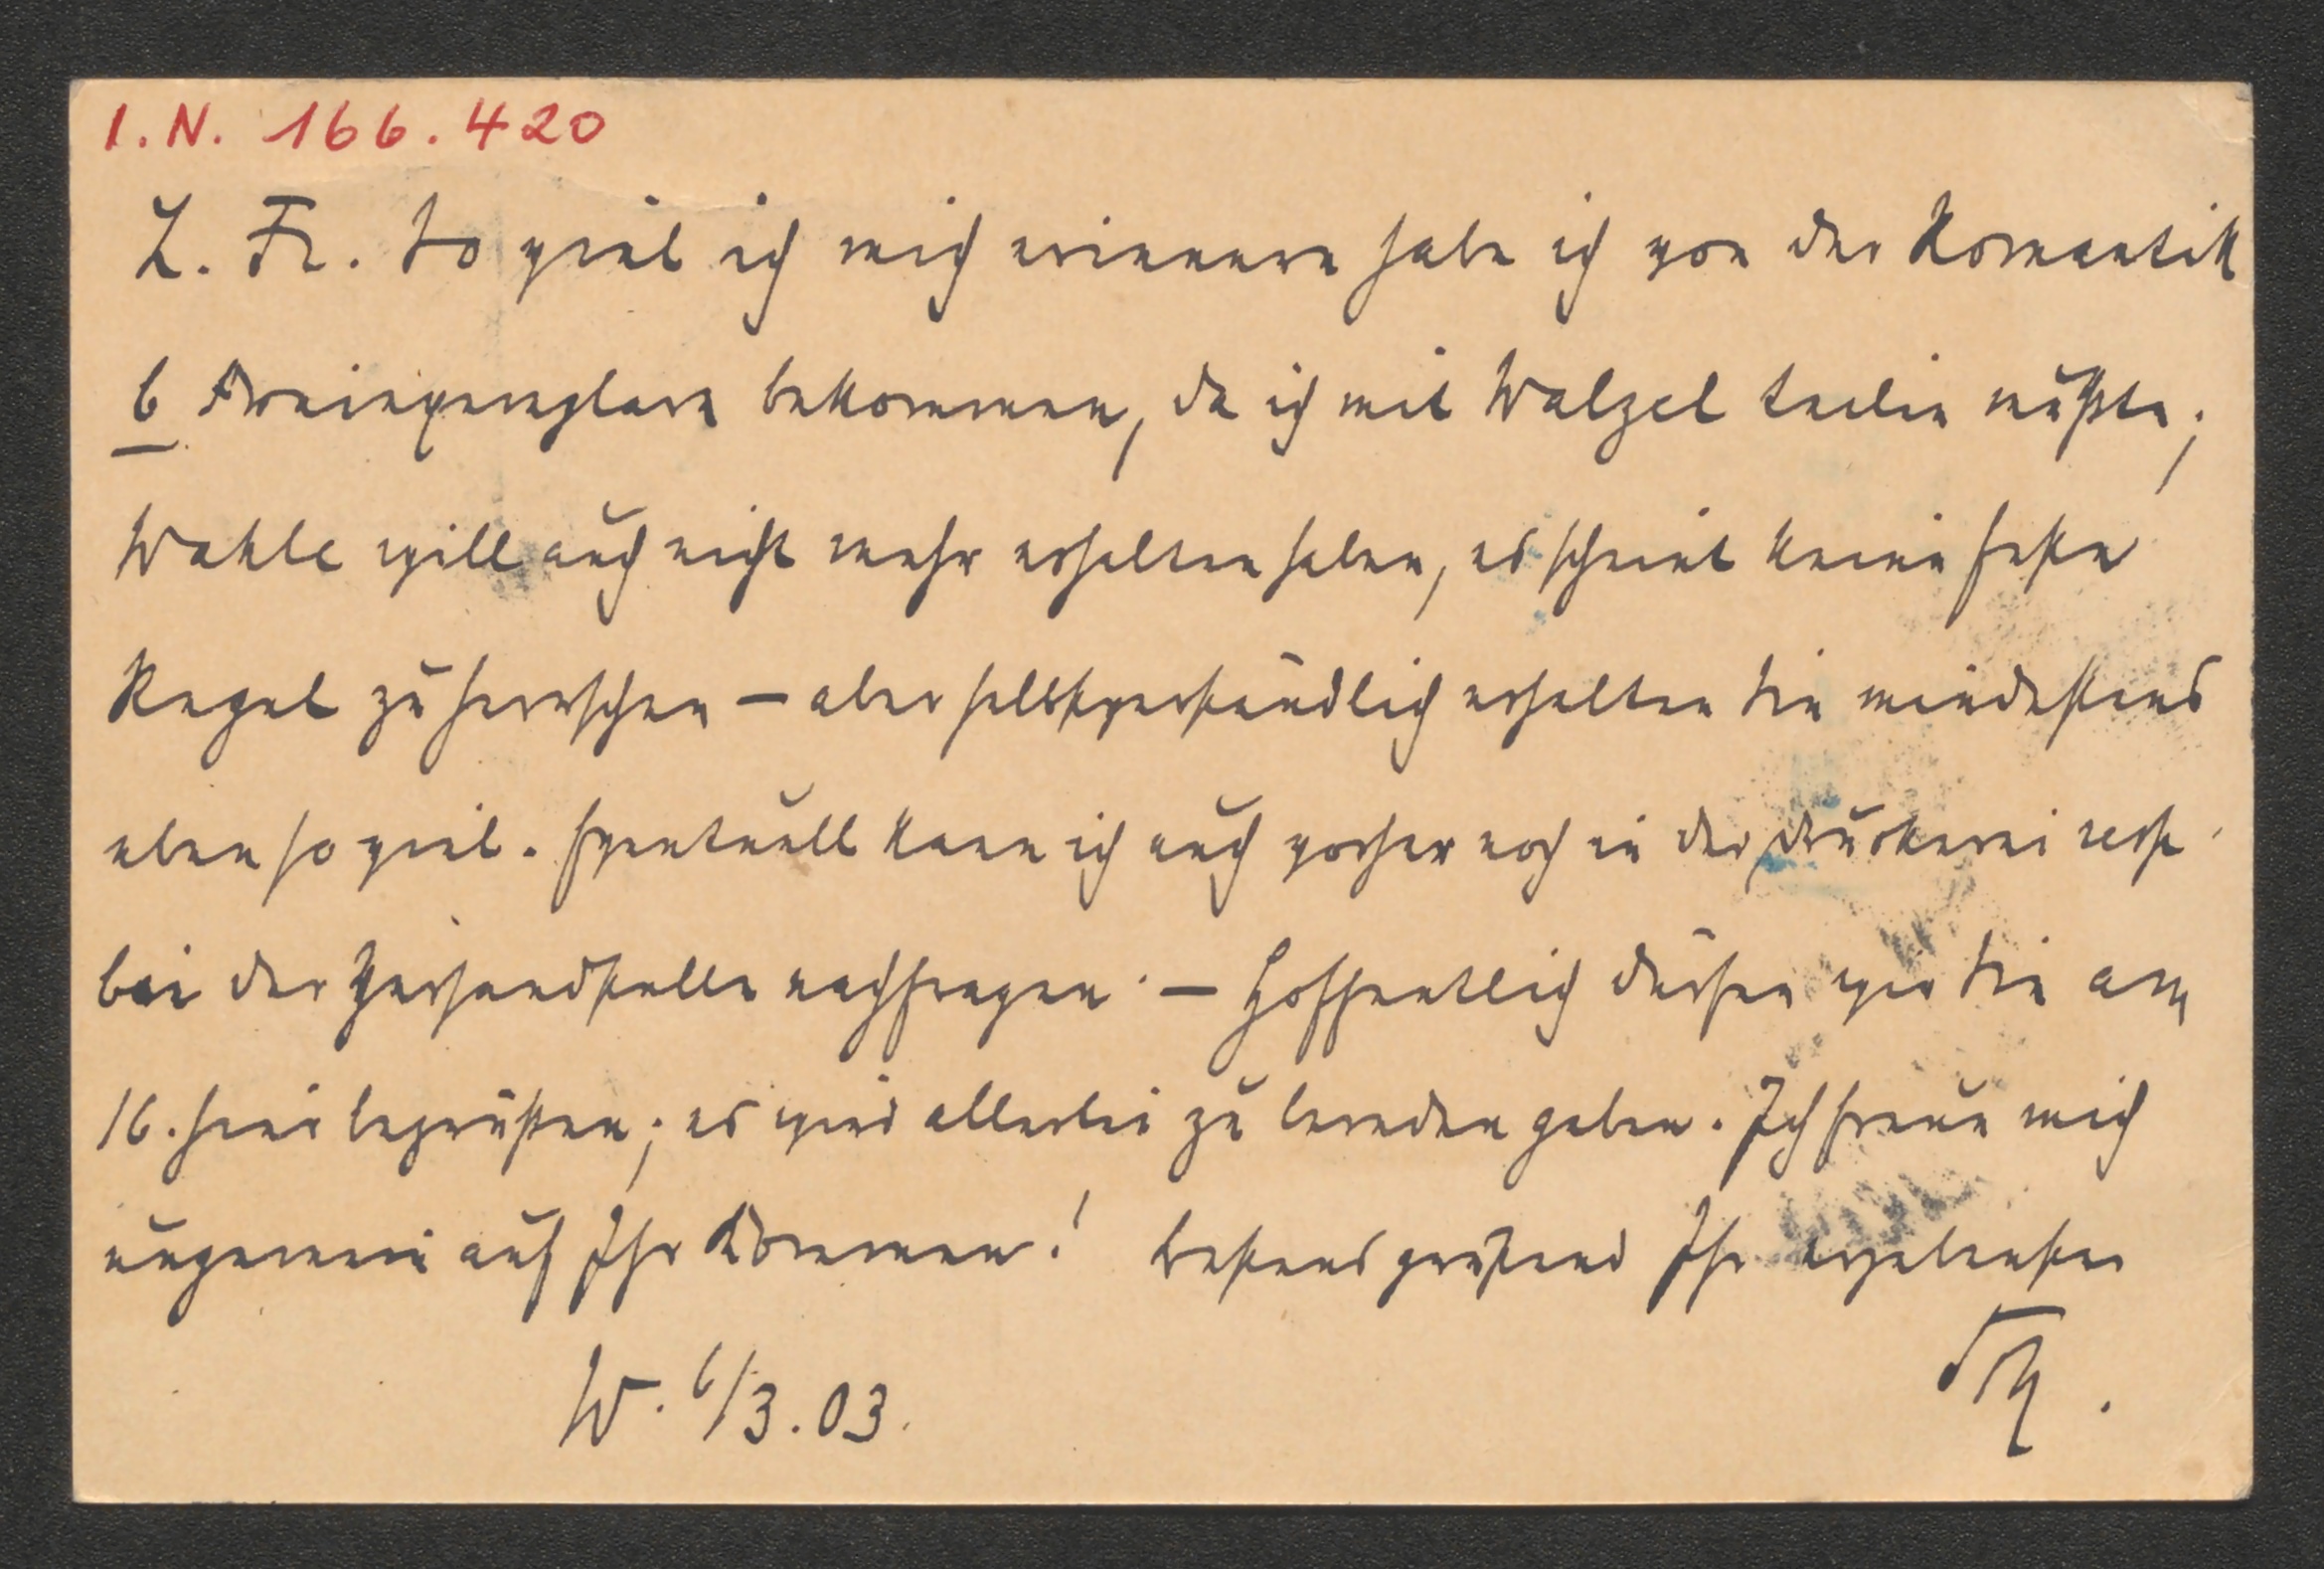 I.N. 166.420
L. Fr. So viel ich mich erinnere habe ich von der Romantik
6 Freiexemplare bekommen, da ich mit Walzel teilen mußte;
Wahle will auch nicht mehr erhalten haben, es scheint keine feste
Regel zu herrschen – aber selbstverständlich erhalten Sie mindestens
eben so viel. Eventuell kann ich auch vorher noch in der Druckerei resp.
bei der Versandstelle nachfragen. – Hoffentlich dürfen wir Sie am
16. hier begrüßen; es wird allerlei zu bereden geben. Ich freue mich
ungemein auf Ihr Kommen! Bestens grüßend Ihr ergebenster
W. 6/3.03.